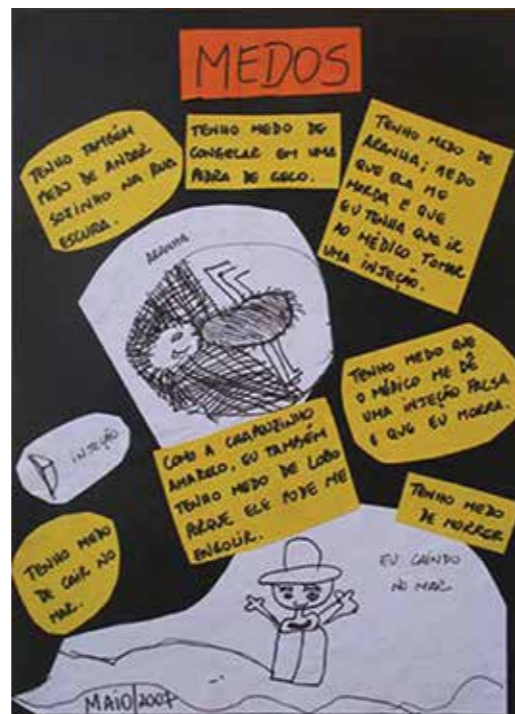 MEDOS
TENHO TAMBÉM
MEDO DE ANDAR
SOZINHO NA RUA
ESCURA.
TENHO MEDO DE
CONGELAR EM UMA
PEDRA DE GELO.
TENHO MEDO DE
ARANHA; MEDO
QUE ELA ME
MORDA E QUE
EU TENHA QUE IR
AO MÉDICO TOMAR
UMA INJEÇÃO.
ARANHA
TENHO MEDO QUE
O MÉDICO ME DÊ
UMA INJEÇÃO FALSA
E QUE EU MORRA.
INJEÇÃO
COMO A CHAPEUZINHO
AMARELO, EU TAMBÉM
TENHO MEDO DE LOBO
PORQUE ELE PODE ME
ENGOLIR.
TENHO MEDO
DE MORRER
TENHO MEDO
DE CAIR NO
MAR.
EU CAINDO
NO MAR
MAIO/2007